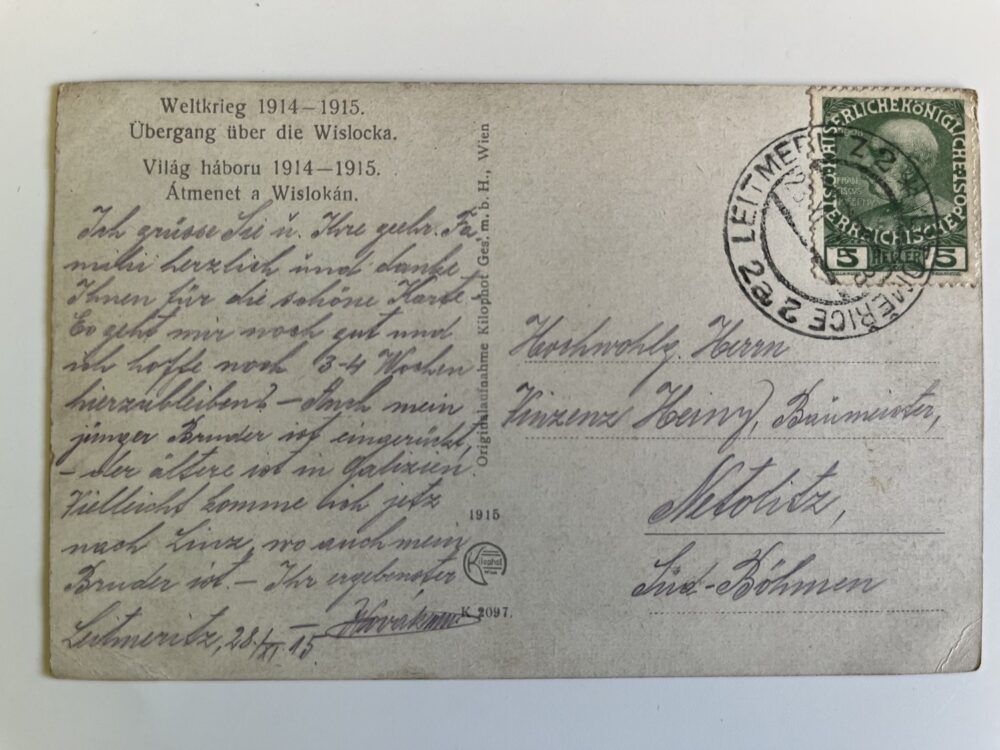 Weltkrieg 1914–1915.
Übergang über die Wislocka.
Világ háboru 1914–1915.
Átmenet a Wislokán.
Ich grüsse Sie u. Ihre geehr. Fa-
milie herzlich und danke
Ihnen für die schöne Karte.
Es geht mir noch gut und
ich hoffe noch 3-4 Wochen
hierzubleiben? – Auch mein
jünger Bruder ist eingerückt,
– der ältere ist in Galizien.
Vielleicht komme ich jetz
nach Linz, wo auch mein
Bruder ist. – Ihr ergebenster
Leitmeritz, 28./XI. 15
Originalaufnahme Kilophot Ges. m. b. H., Wien
1915
Kilophot
K 2097.
KAISERLICHE KÖNIGLICHE
ÖSTERREICHISCHE POST
5 HELLER 5
LEITMERITZ 2
LITOMĚŘICE 2
Hochwohlg. Herrn
Vinzenz Baumeister,
Netolitz,
Süd-Böhmen